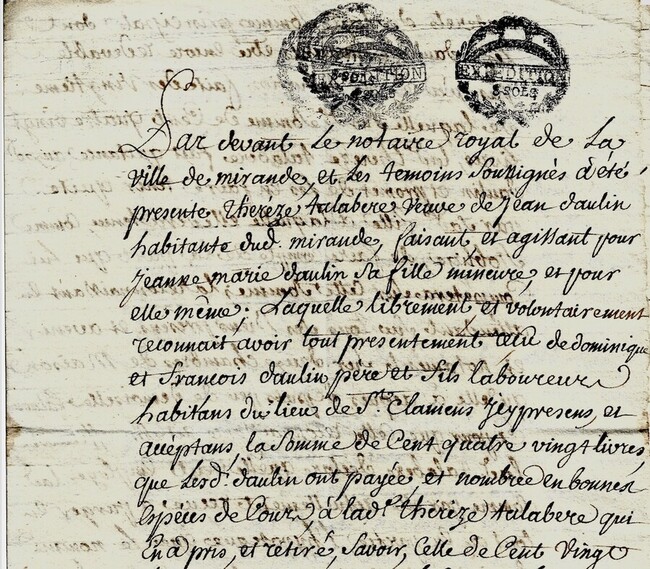 EXPEDITION
8 SOLS
EXPEDITION
8 SOLS
Par devant Le notaire royal de La
ville de mirande, et Les temoins Soussignés a été
présente thérèze talabere veuve de jean daulin
habitante dud. mirande, faisant et agissant pour
jeanne marie daulin sa fille mineure, et pour
elle même. Laquelle librement et volontairement
reconnait avoir tout presentement reçu de dominique
et françois daulin père et fils laboureurs
habitans du lieu de Ste Clamens Jcy presens, et
accéptans, la Somme de Cent quatre vingt livres,
que Lesd. daulin ont payée et nombrée en bonnes
espéces de Cours à lade. thérèze talabere qui
En a pris, et retiré, Savoir, Celle de Cent Vingt